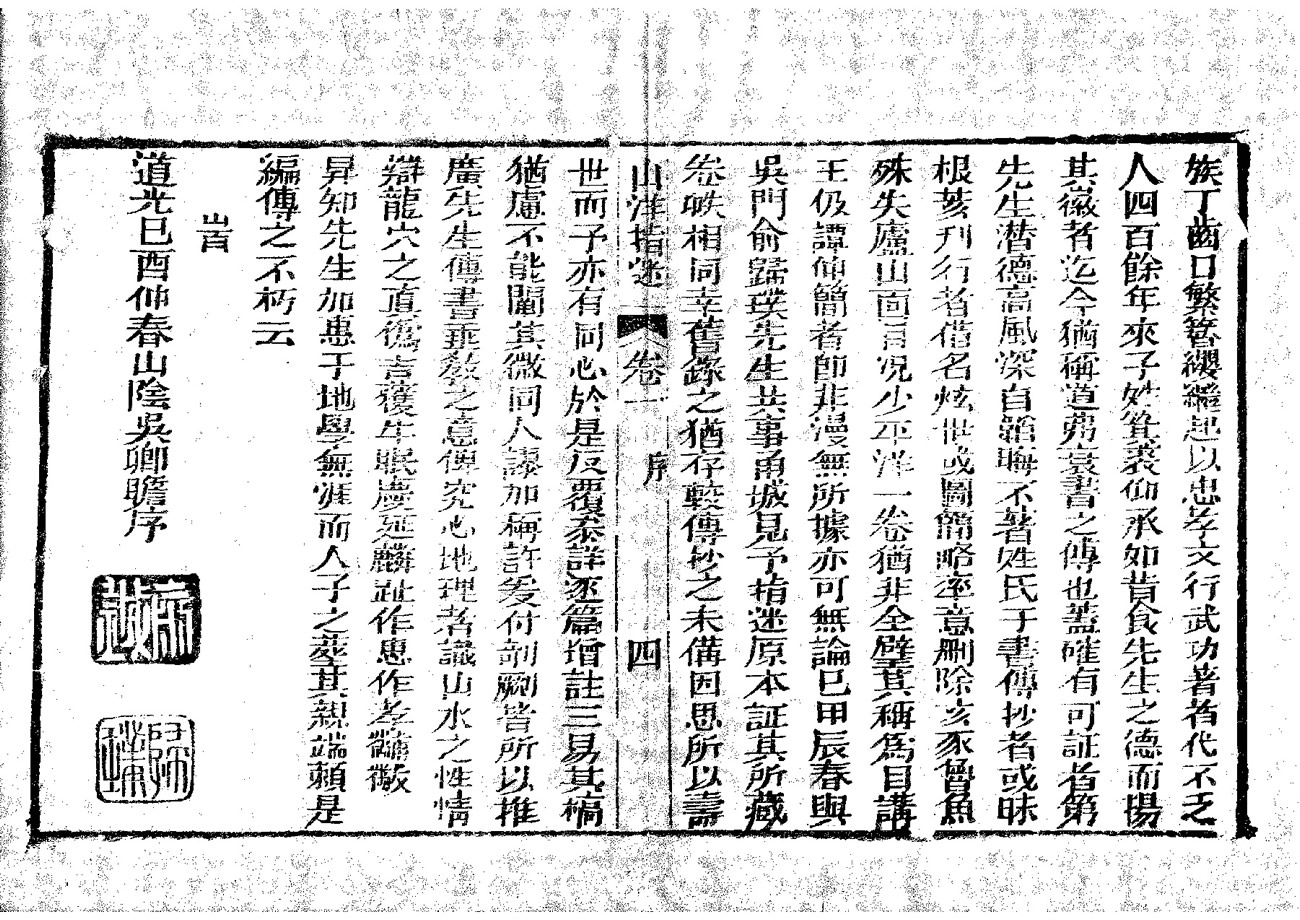 族丁齒口繁簪纓繼起以忠孝文行武功著者代不乏
人四百餘年來子姓箕裘仰承如昔食先生之德而揚
其徽者迄今猶稱道弗衰書之傳也蓋確有可証者第
先生潛德高風深自韜晦不著姓氏于書傳抄者或昧
根荄刋行者借名炫世或圖簡略率意刪除亥豕魯魚
殊失廬山面目况少平洋一卷猶非全璧其稱爲目講
王仍譚仲簡者卽非漫無所據亦可無論已甲辰春與
吳門俞歸璞先生共事甬城見予指迷原本証其所藏
卷帙相同幸舊錄之猶存較傳抄之未備因思所以壽
山洋指迷 卷一 序 四
世而予亦有同心於是反覆叅詳逐篇增註三易其稿
猶慮不能闡其微同人謬加稱許爰付剞劂皆所以推
廣先生傳書垂敎之意俾究心地理者識山水之性情
辯龍穴之眞僞吉獲牛眠慶延麟趾作忠作孝黼黻
昇知先生加惠于地學無涯而人子之塟其親端賴是
編傳之不朽云
旹
道光己酉仲春山陰吳卿瞻序